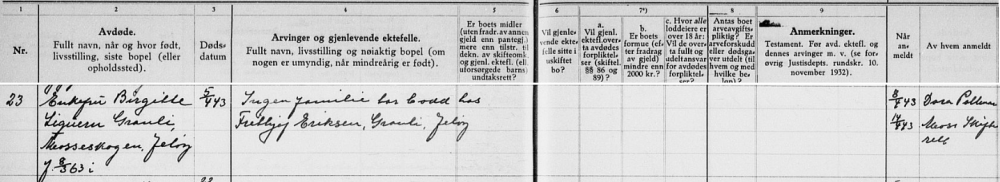 1 2 3 4 5 6 7*) 8 9 10 11
Nr.
Avdøde.
Fullt navn, når og hvor født,
livsstilling, siste bopel (eller
opholdssted).
Døds-
datum
Arvinger og gjenlevende ektefelle.
Fullt navn, livsstilling og nøiaktig bopel (om
nogen er umyndig, når mindreårig er født).
Er boets midler
(uten fradrag av annen
gjeld enn pantegj.)
mere enn tilstr. til
dekn. av skifteomk.
og gjenl. ektef. (ell.
uforsørgede barns)
undtaksrett?
Vil gjenle-
vende ekte-
felle sitte i
uskiftet
bo?
a.
Vil gjenl.
ektef. overta
avdødes
forpliktel-
ser (skiftel.
§§ 86 og
89)?
b.
Er boets
formue (ef-
ter fradrag
av gjeld)
mindre enn
2000 kr.?
c. Hvor alle
loddeiere er
over 18 år:
Vil de overta
fullt og
udelt ansvar
for avdødes
forpliktel-
ser?
Antas boet
arveavgifts-
pliktig? Er
arveforskudd
eller dødsga-
ver utdelt (til
hvem og med
hvilke be-
løp)?
Anmerkninger.
Testament. Før avd. ektef. og
dennes arvinger m. v. (se for-
øvrig Justisdepts. rundskr. 10.
november 1932).
Når
an-
meldt
Av hvem anmeldt
23
Enkefru Birgitte
Granli,
Mosseskogen, Jeløy
f. 8/3 63 i
5/1 43
Ingen familie bor bodd hos
Eriksen, Granli, Jeløy
8/1 43
Dora
43
Moss Skifte
rett